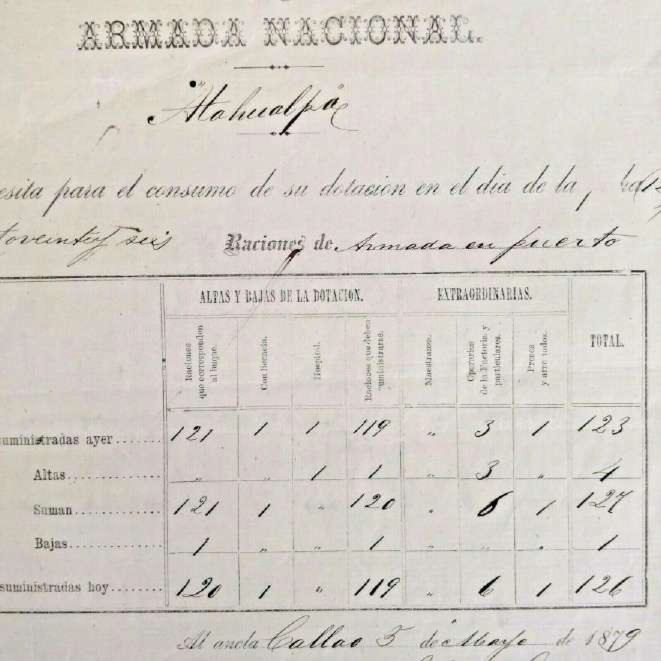 ARMADA NACIONAL.
"Atahualpa"
esita para el consumo de su dotacion en el dia de la
toveintey seis Raciones de Armada en puerto
ALTAS Y BAJAS DE LA DOTACION. EXTRAORDINARIAS. TOTAL.
Raciones que corresponden al buque. Con licencia. Hospital. Raciones que deben suministrarse. Maestranza. Operarios de la Factoria y particulares. Presos y arrestados.
suministradas ayer....... 121 1 1 119 " 3 1 123
Altas............ " " 1 1 " 3 " 4
Suman............ 121 1 " 120 " 6 1 127
Bajas............ 1 " " 1 " " " 1
suministradas hoy....... 120 1 " 119 " 6 1 126
Al ancla Callao 5 de Mayo de 1879